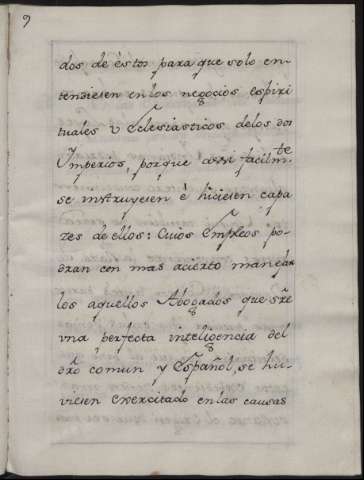 9
dos de èstos para que solo en-
tendiesen en los negocios espiri
tuales v Eclesiasticos de los dos
Imperios, porque assi facilm.te
se instruyesen è hiciesen capa
zes de ellos: Cuios Empleos po-
dran con mas acierto manejar
los aquellos Abogados que sre
vna perfecta inteligencia del
dro comun y Español, se hu-
viesen exercitado en las causas